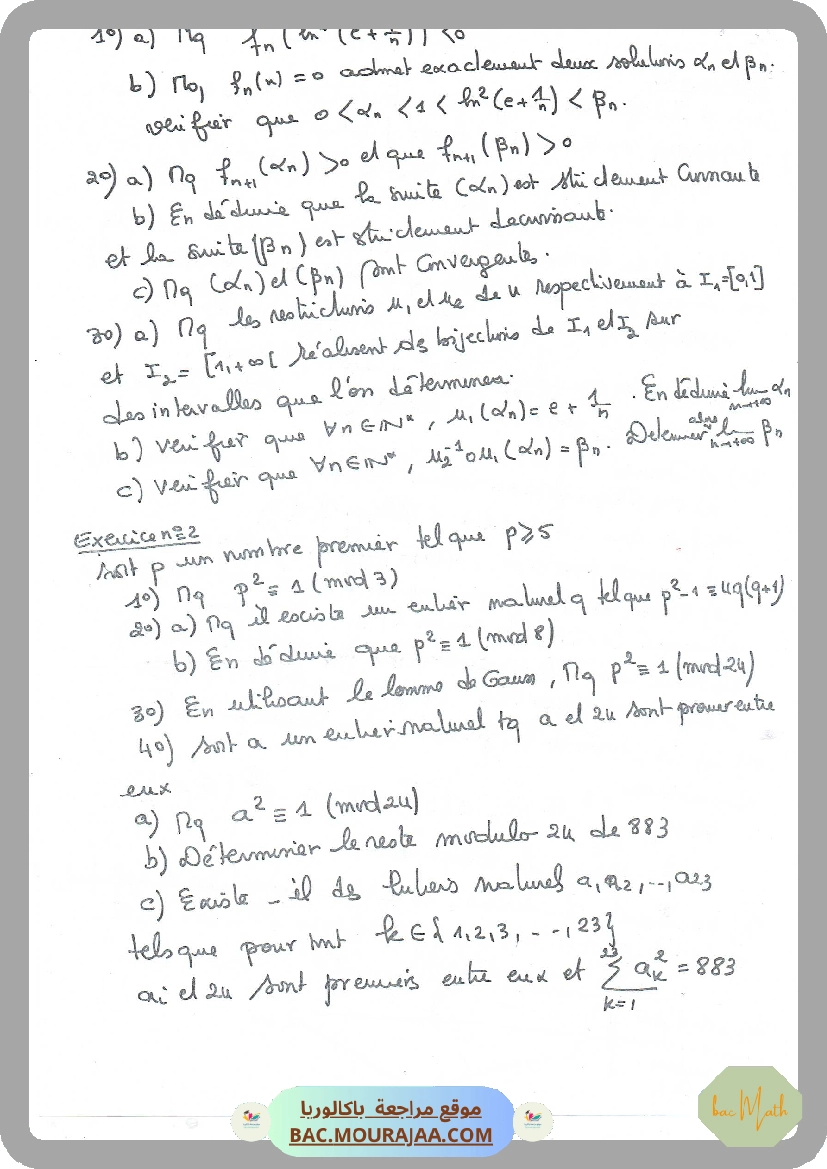 1°) a) Mq fn(ln²(e+1/n)) <0
b) Mq fn(x) = 0 admet exactement deux solutions αn et βn.
vérifier que 0 < αn < 1 < ln²(e+1/n) < βn.
2°) a) Mq fn+1(αn) >0 et que fn+1(βn) >0
b) En déduire que la suite (αn) est strictement croissante
et la suite (βn) est strictement décroissante.
c) Mq (αn) et (βn) sont convergentes.
3°) a) Mq les restrictions u1 et u2 de u respectivement à I1=[0,1]
et I2 = [1,+∞[ réalisent des bijections de I1 et I2 sur
des intervalles que l'on déterminera.
b) vérifier que ∀n∈IN*, u1(αn) = e + 1/n . En déduire lim n→+∞ αn
c) vérifier que ∀n∈IN*, u2⁻¹ o u1(αn) = βn. Déterminer alors lim n→+∞ βn
Exercice n°2
Soit p un nombre premier tel que p⩾5
1°) Mq p² ≡ 1 (mod 3)
2°) a) Mq il existe un entier naturel q tel que p²-1 = 4q(q+1)
b) En déduire que p² ≡ 1 (mod 8)
3°) En utilisant le lemme de Gauss, Mq p² ≡ 1 (mod 24)
4°) Soit a un entier naturel tq a et 24 sont premier entre
eux
a) Mq a² ≡ 1 (mod 24)
b) Déterminer le reste modulo 24 de 883
c) Existe-il des entiers naturels a1, a2, --, a23
tels que pour tout k∈{1,2,3, - - -, 23}
ai et 24 sont premiers entre eux et 23 ∑ k=1 ak² = 883
موقع مراجعة باكالوريا
BAC.MOURAJAA.COM
bac Math